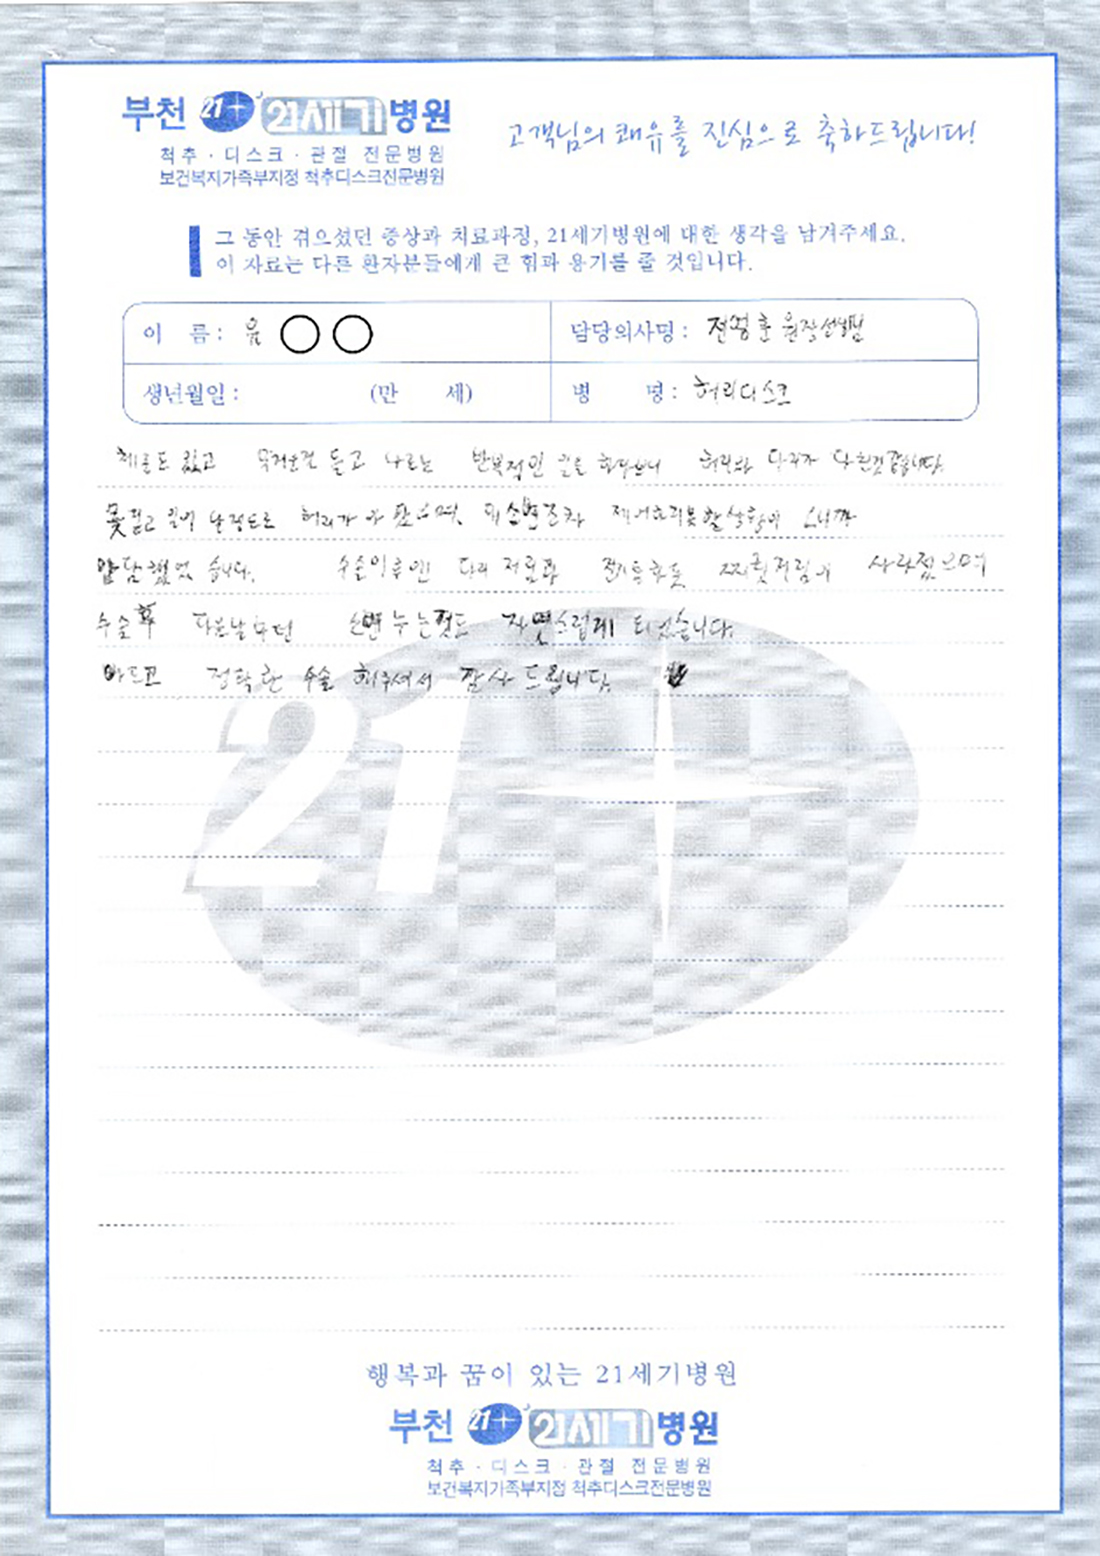 부천 21+ 21세기병원
척추 · 디스크 · 관절 전문병원
보건복지가족부지정 척추디스크전문병원
고객님의 쾌유를 진심으로 축하드립니다!
그 동안 겪으셨던 증상과 치료과정, 21세기병원에 대한 생각을 남겨주세요.
이 자료는 다른 환자분들에게 큰 힘과 용기를 줄 것입니다.
이 름 : 윤 ○○
담당의사명 : 전영훈 원장선생님
생년월일 : (만 세)
병 명 : 허리디스크
무거운걸 들고 나르는 반복적인 일을 하다보니 허리와 다리가
허리가 아팠으며, 대소변조차
수술이후엔 다리 저림과 사라졌으며
수술후 다음날부턴 소변 누는것도 자연스럽게 되었습니다.
정확한 수술 해주셔서 감사드립니다.
21
행복과 꿈이 있는 21세기병원
부천 21+ 21세기병원
척추 · 디스크 · 관절 전문병원
보건복지가족부지정 척추디스크전문병원